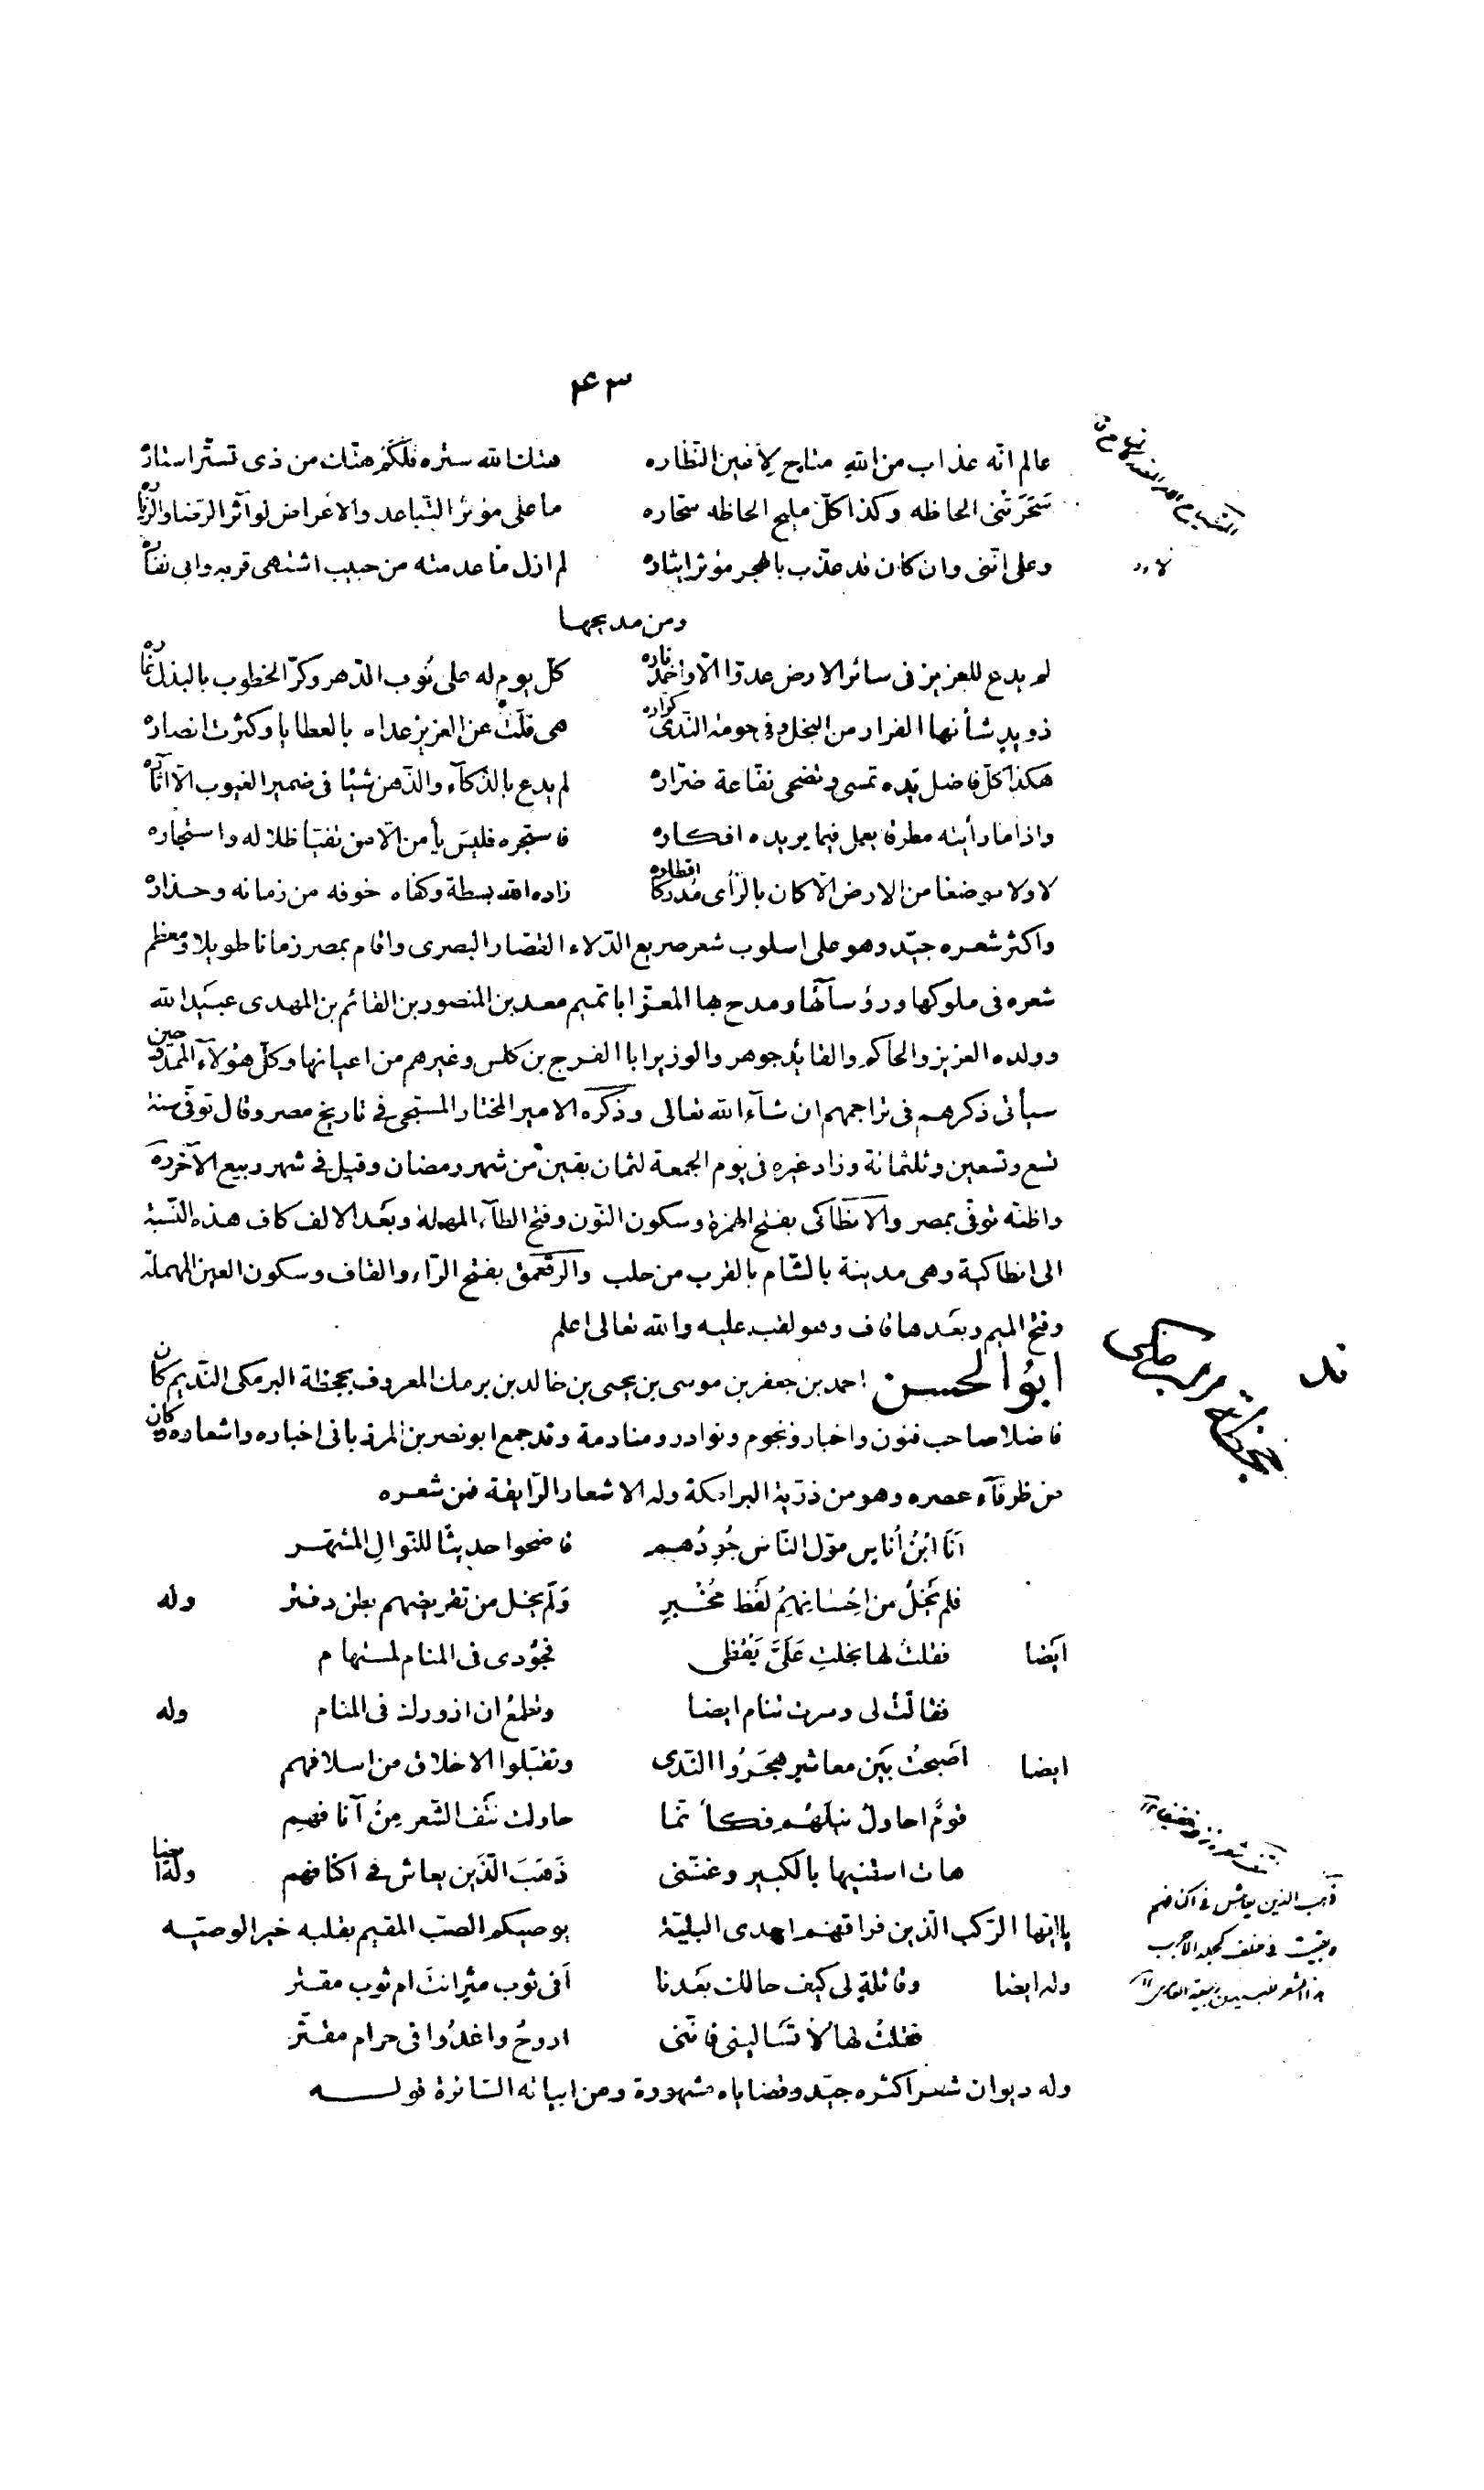 ٤٣
عالم انّه عذاب من اللّه متاح لاعين النظاره هتك اللّه ستره فلكم هتّك من ذى تستّر استاره
سَحَرَتْنى الحاظه وكذا كلّ مليح الحاظه سحّاره ما على مؤثر التّباعد والاعراض لو آثر الرّضا والزّياره
وعلى انّنى وان كان قد عذّب بالهجر مؤثر ايثاره لم ازل ما عدمته من حبيب اشتهى قربه وابى نفاره
ومن مديحها
لم يدع للعزيز فى سائر الارض عدوّا الّا واخمد ناره كلّ يوم له على نُوب الدّهر وكرّ الخطوب بالبذل غاره
ذو يدٍ شأنها الفرار من البخل وفى حومة النّدى كراره هى فلّت عن العزيز عداه بالعطايا وكثرت انصاره
هكذا كلّ فاضل يده تمسى وتضحى نفّاعة ضرّاره لم يدع بالذّكآء والذّهن شيئا فى ضمير الغيوب الّا اثاره
واذا ما رأيته مطرقا يعمل فيما يريده افكاره فاستجره فليس يأمن الّا من تفيّأ ظلاله واستجاره
لا ولا موضعا من الارض الّا كان بالرّأى مُدركا اقطاره زاده اللّه بسطة وكفاه خوفه من زمانه وحذاره
واكثر شعره جيّد وهو على اسلوب شعر صريع الدّلاء القصّار البصرى واقام بمصر زمانا طويلا ومعظم
شعره فى ملوكها ورؤسآئها ومدح بها المعزّ ابا تميم معد بن المنصور بن القائم بن المهدى عبيد اللّه
وولده العزيز والحاكم والقائد جوهر والوزير ابا الفرج بن كلس وغيرهم من اعيانها وكلّ هؤلآء الممدوحين
سيأتى ذكرهم فى تراجمهم ان شآء اللّه تعالى وذكره الامير المختار المسبّحى فى تاريخ مصر وقال توفّى سنة
تسع وتسعين وثلثمائة وزاد غيره فى يوم الجمعة لثمان بقين من شهر رمضان وقيل فى شهر ربيع الآخر ره
واظنّه توفّى بمصر والانطاكى بفتح الهمزة وسكون النّون وفتح الطآء المهملة وبعد الالف كاف هذه النّسبة
الى انطاكية وهى مدينة بالشّام بالقرب من حلب والرقعمق بفتح الرّاء والقاف وسكون العين المهملة
وفتح الميم وبعدها قاف وهو لقب عليه واللّه تعالى اعلم
ابُو الحسن احمد بن جعفر بن موسى بن يحيى بن خالد بن برمك المعروف بجحظة البرمكى النّديم كان
فاضلا صاحب فنون واخبار ونجوم ونوادر ومنادمة وقد جمع ابو نصر بن المرزبانى اخباره واشعاره وكان
من ظرفآء عصره وهو من ذرّية البرامكة وله الاشعار الرّايقة فمن شعره
اَنَا ابْنُ اُناسٍ موّل النّاس جُودُهم فاضحوا حديثًا للنّوالِ المشتهر
فلم يَخلُ من اِحسَانِهِمُ لَفظ مُخْبِرٍ وَلَم يخل من تقريضهم بطن دفتر وله
ايَضا فقلتُ لها بخلتِ عَلَىَّ يَقْظى فجُودى فى المنام لمستهام
فقالَتْ لى وصرت تنام ايضا وتطمع ان ازورك فى المنام وله
ايضا اَصبحتُ بَيَن معاشرٍ هجَرُوا النّدى وتقبّلوا الاخلاق من اسلافهم
قومٌ احاول نيلَهُم فكأنّما حاولت نَتْفَ الشّعر مِنْ آنافهِم
هات اسقنيها بالكبير وغنّنى ذَهَبَ الّذين يعاش فى اكنافهم وله ايضا
يا ايّها الرّكب الّذين فراقهم احدى البليّة يوصيكم الصبّ المقيم بقلبه خير الوصيّه
وله ايضا وقائلةٍ لى كيف حالك بعَدنا اَفى ثوب مثرٍ انتَ ام ثوب مقتر
فقلتُ لها لا تَسَالينى فانّنى اروحُ واغدُوا فى حرام مقتّر
وله ديوان شعر اكثره جيّد وقضاياه مشهورة ومن ابياته السّائرة قولـــه
ذهب الذين يعاش فى اكنافهم
وبقيت فى خلف كجلد الاجرب
هذا الشعر للبيد بن ربيعة العامرى